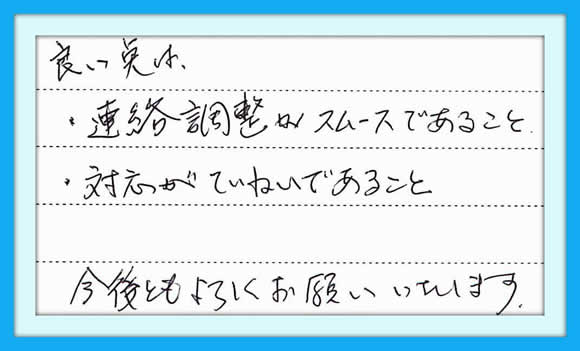 良い点は、
・連絡調整がスムースであること.
・対応がていねいであること
今後ともよろしくお願いいたします.